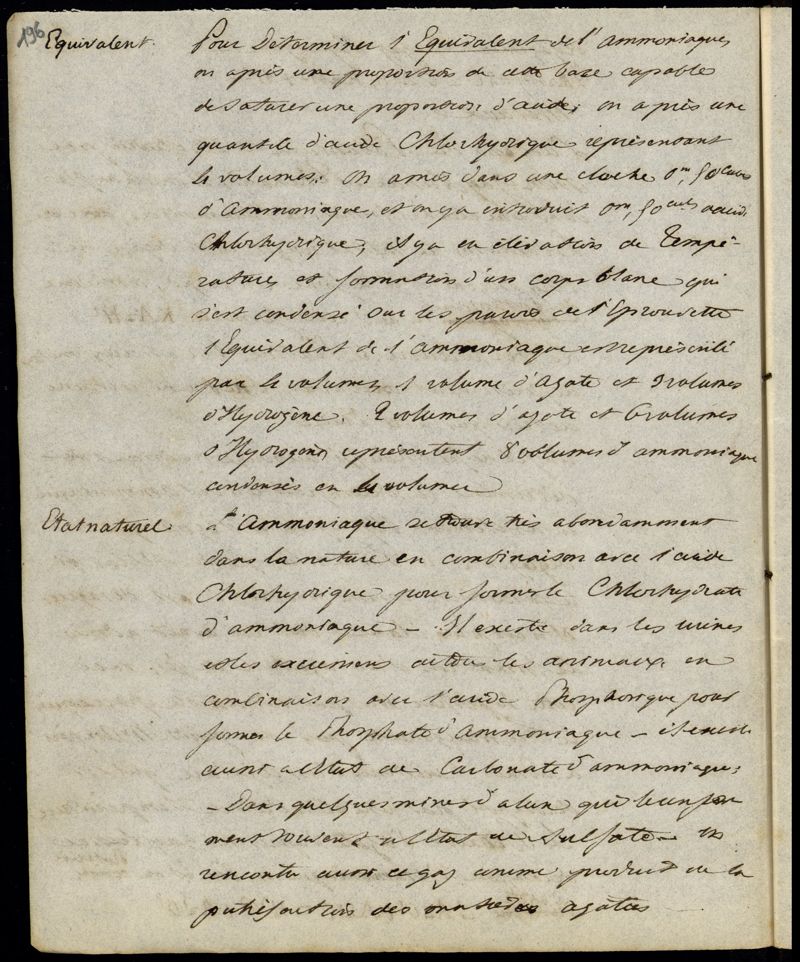 196
Equivalent.
Pour Déterminer l'Equivalent de l'ammoniaque,
on a pris une proportion de cette base capable
de saturer une proportion d'acide; on a pris une
quantité d'acide Chlorhydrique représentant
4 volumes; on a mis dans une cloche 0m,50 cubes
d'Ammoniaque, et on y a introduit 0m,50 cubes acide
Chlorhydrique, il y a eu élévation de tempé-
rature, et formation d'un corps blanc qui
s'est condensé sur les parois de l'Eprouvette
l'Equivalent de l'ammoniaque est représenté
par 4 volumes, 1 volume d'azote et 3 volumes
d'Hydrogène. 2 volumes d'azote et 6 volumes
d'Hydrogène représentent 8 volumes d'ammoniaque
condensés en 4 volumes
Etat naturel
L'Ammoniaque se trouve très abondamment
dans la nature en combinaison avec l'acide
Chlorhydrique pour former le Chlorhydrate
d'ammoniaque – Il existe dans les urines
et les excremens de tous les animaux en
combinaison avec l'acide Phosphorique pour
former le Phosphate d'Ammoniaque – il existe
aussi à l'état de Carbonate d'ammoniaque;
– Dans quelques mines d'alun qui le renfer
ment souvent à l'état de sulfate – on
rencontre aussi ce gaz comme produit de la
putréfaction des matières azotées